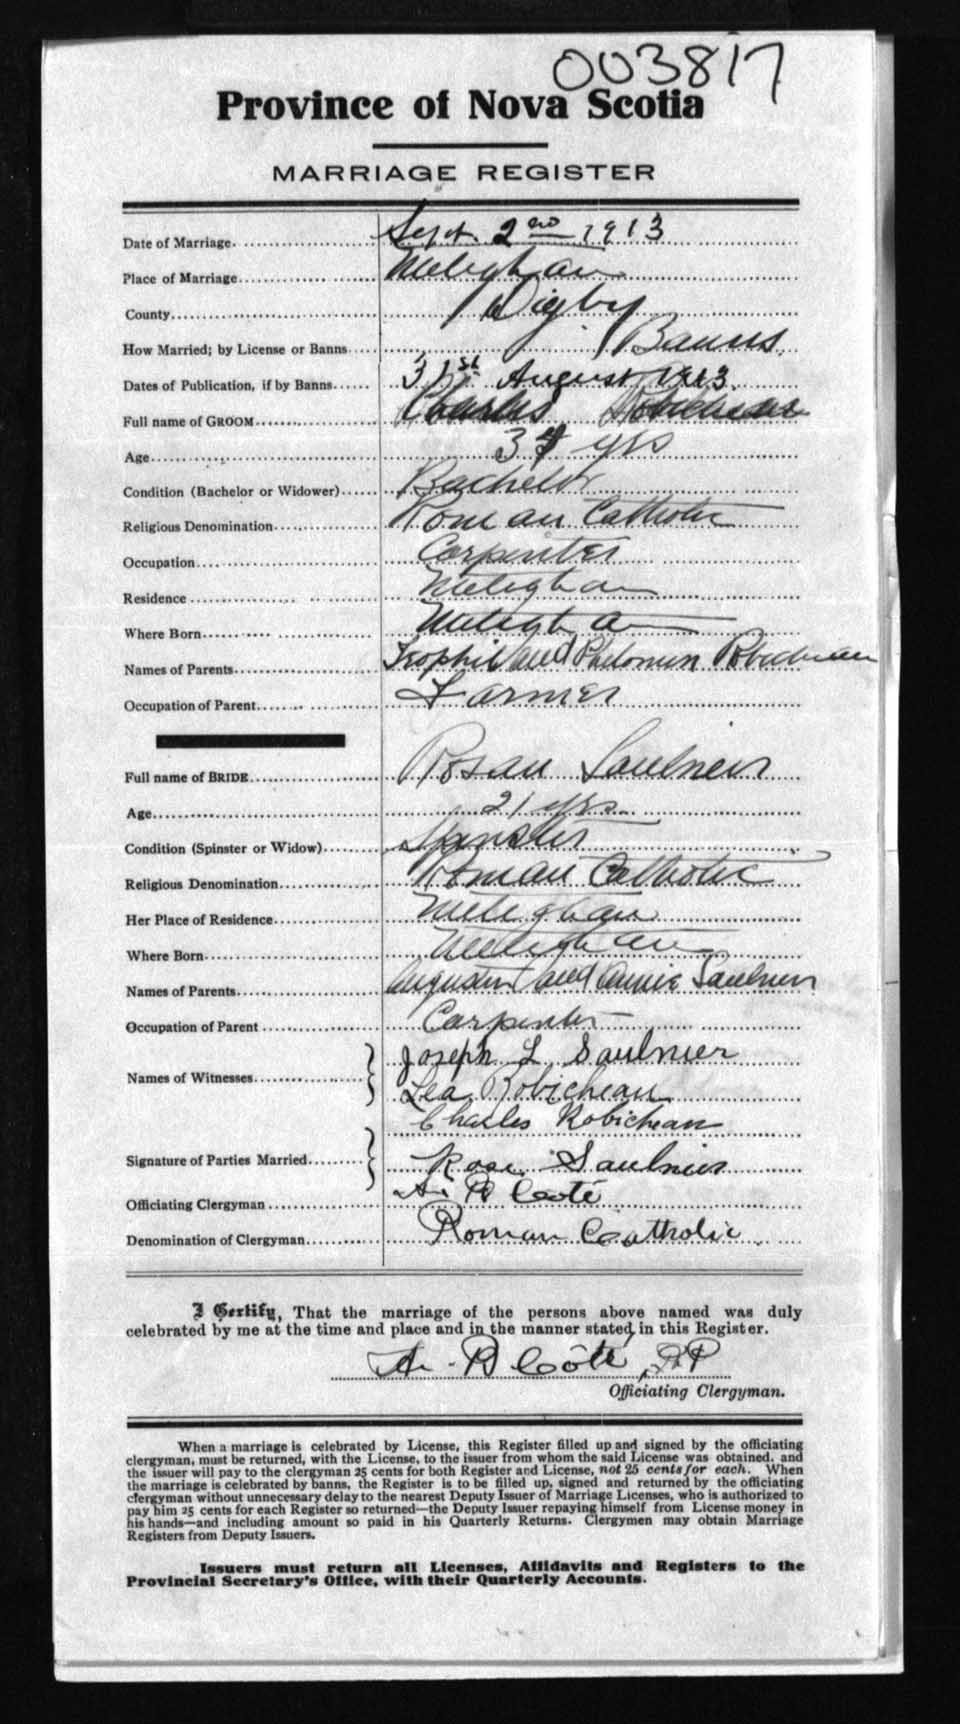 003817
Province of Nova Scotia
MARRIAGE REGISTER
Date of Marriage Sept. 2nd 1913
Place of Marriage Meteghan
County Digby
How Married; by License or Banns Banns
Dates of Publication, if by Banns 31st August 1913
Full name of GROOM Charles Robicheau
Age 34 yrs
Condition (Bachelor or Widower) Bachelor
Religious Denomination Roman Catholic
Occupation Carpenter
Residence Meteghan
Where Born Meteghan
Names of Parents and Philomen Robicheau
Occupation of Parent Farmer
Full name of BRIDE Saulnier
Age 21 yrs
Condition (Spinster or Widow) Spinster
Religious Denomination Roman Catholic
Her Place of Residence Meteghan
Where Born Meteghan
Names of Parents and Annie Saulnier
Occupation of Parent Carpenter
Names of Witnesses Joseph L Saulnier
Lea Robicheau
Signature of Parties Married Charles Robicheau
Rose Saulnier
Officiating Clergyman A. B Coté
Denomination of Clergyman Roman Catholic
I Certify, That the marriage of the persons above named was duly
celebrated by me at the time and place and in the manner stated in this Register.
A. B Côté, PP
Officiating Clergyman.
When a marriage is celebrated by License, this Register filled up and signed by the officiating
clergyman, must be returned, with the License, to the issuer from whom the said License was obtained. and
the issuer will pay to the clergyman 25 cents for both Register and License, not 25 cents for each. When
the marriage is celebrated by banns, the Register is to be filled up, signed and returned by the officiating
clergyman without unnecessary delay to the nearest Deputy Issuer of Marriage Licenses, who is authorized to
pay him 25 cents for each Register so returned—the Deputy Issuer repaying himself from License money in
his hands—and including amount so paid in his Quarterly Returns. Clergymen may obtain Marriage
Registers from Deputy Issuers.
Issuers must return all Licenses, Affidavits and Registers to the
Provincial Secretary's Office, with their Quarterly Accounts.